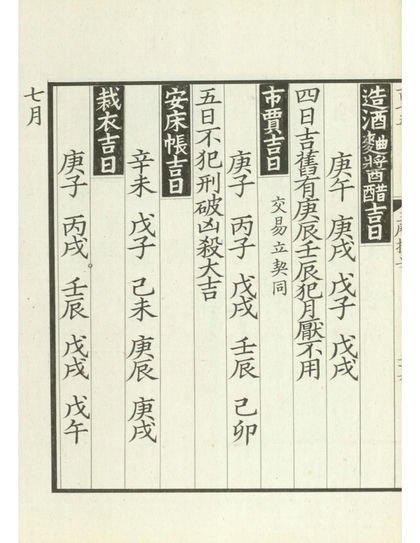 造酒麯醬醋吉日
庚午 庚戌 戊子 戊戌
四日吉舊有庚辰壬辰犯月厭不用
市賈吉日 交易立契同
庚子 丙子 戊戌 壬辰 己卯
五日不犯刑破凶殺大吉
安床帳吉日
辛未 戊子 己未 庚辰 庚戌
裁衣吉日
庚子 丙戌。壬辰 戊戌 戊午
七月